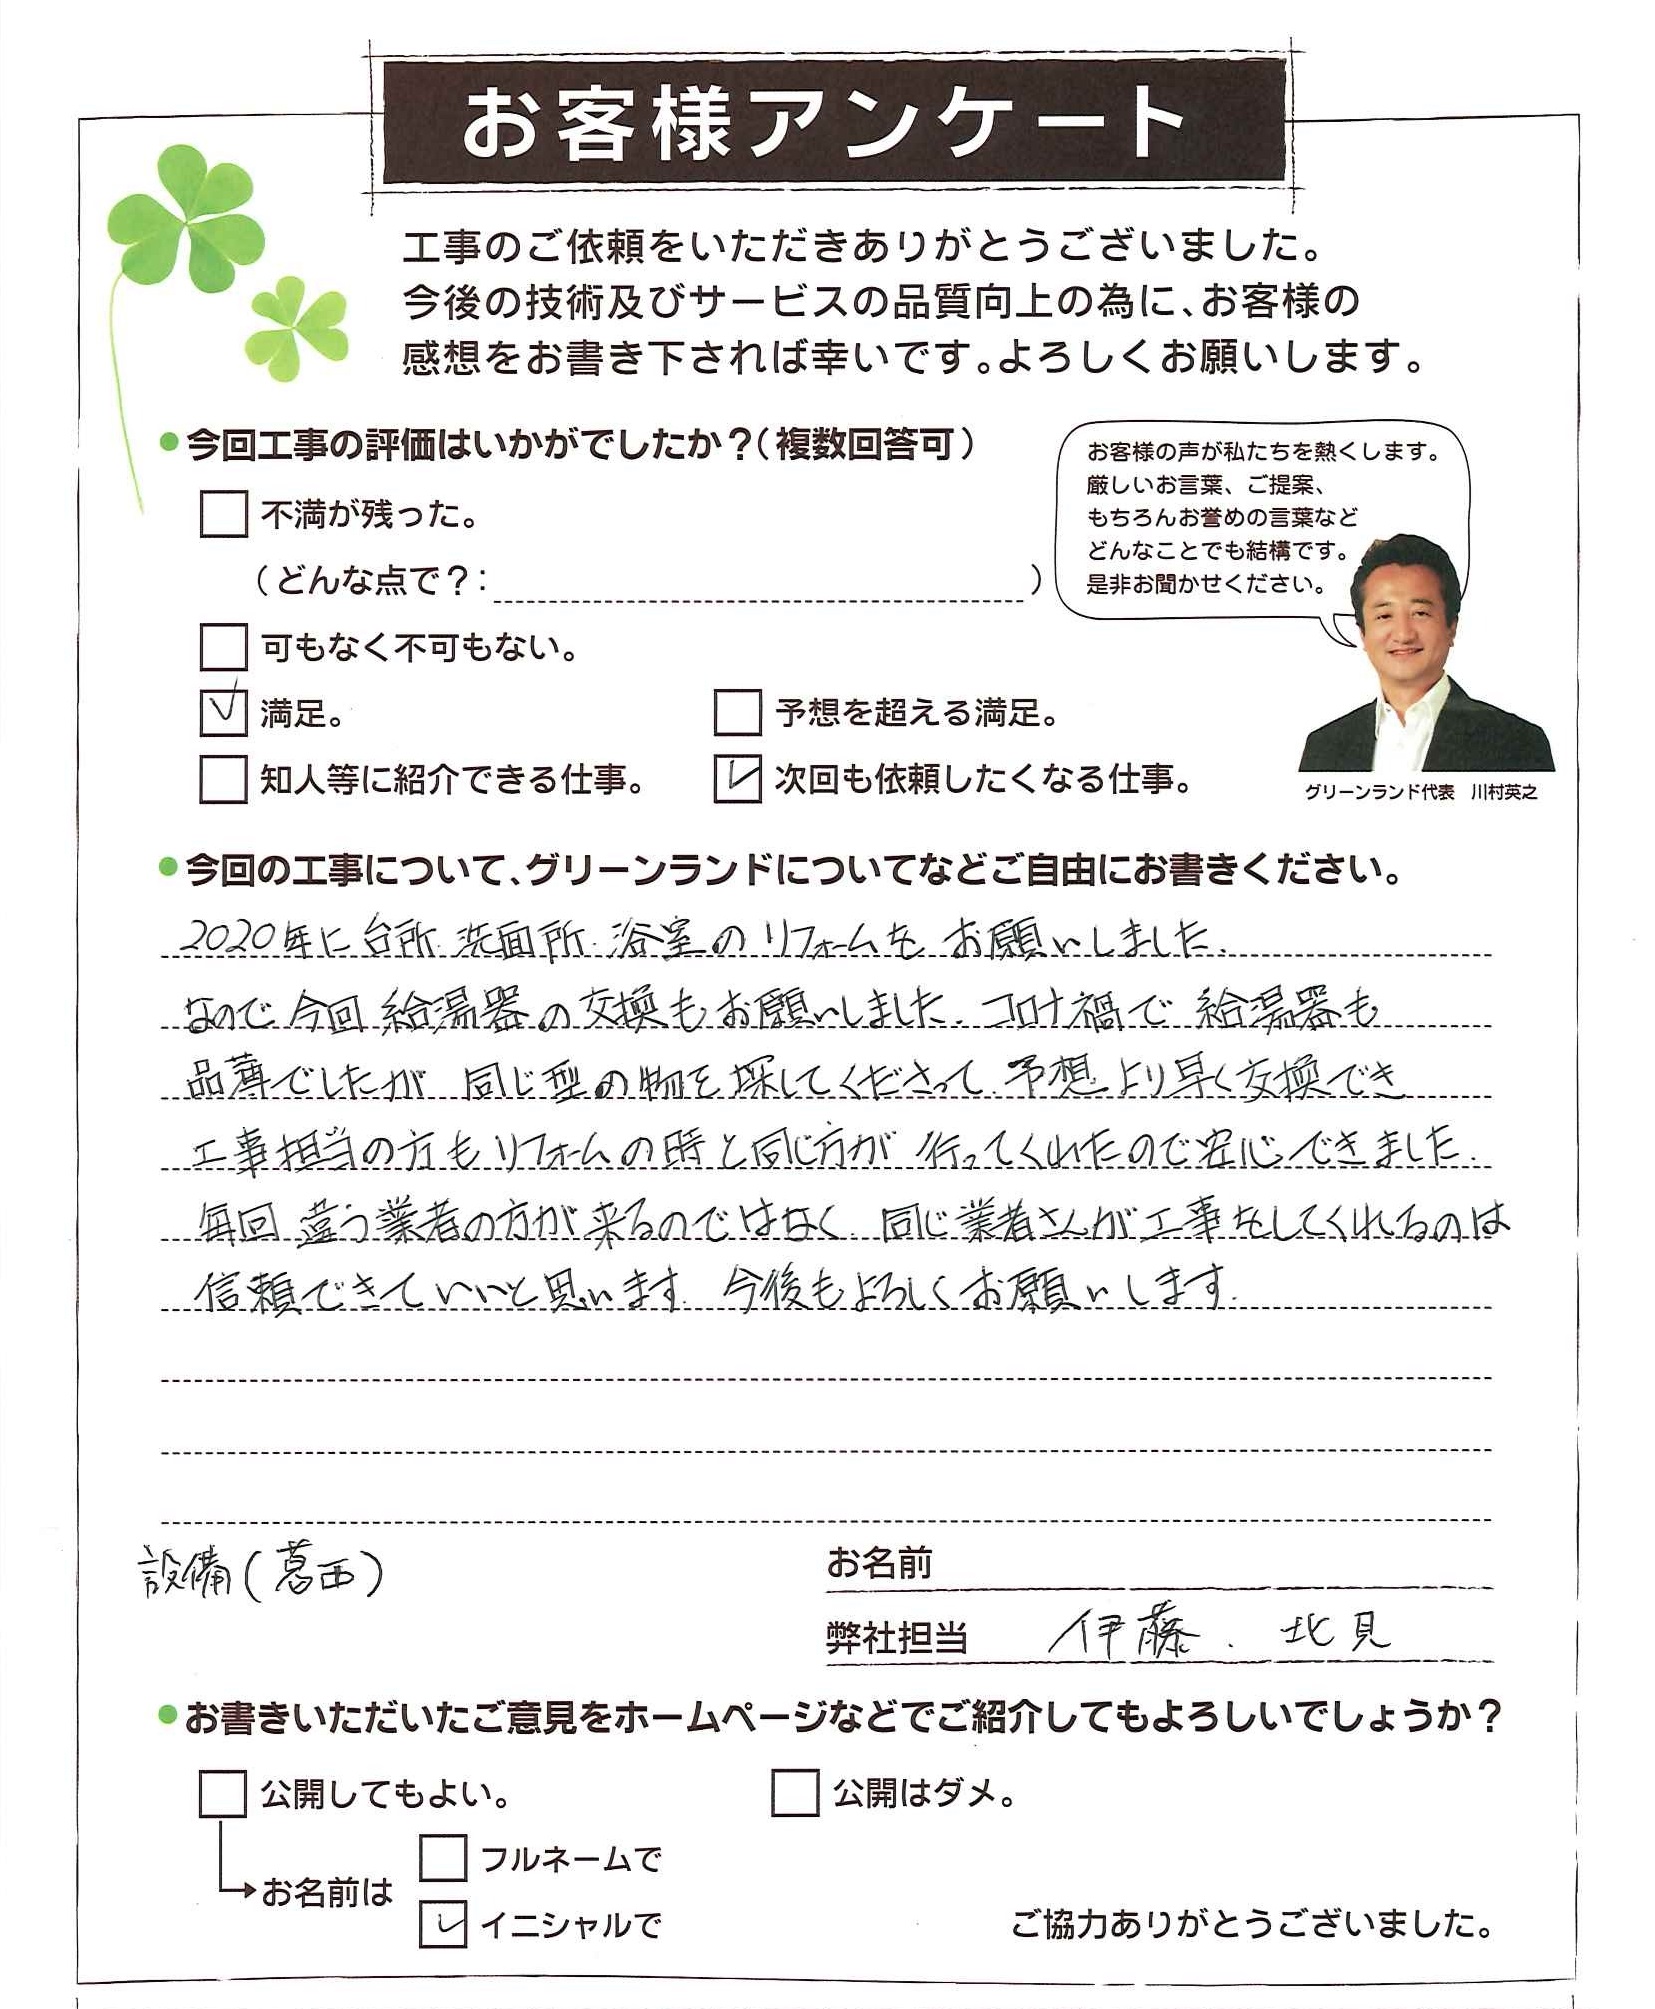 お客様アンケート
工事のご依頼をいただきありがとうございました。
今後の技術及びサービスの品質向上の為に、お客様の
感想をお書き下されば幸いです。よろしくお願いします。
●今回工事の評価はいかがでしたか？（複数回答可）
不満が残った。
（どんな点で？：　）
可もなく不可もない。
満足。
予想を超える満足。
知人等に紹介できる仕事。
次回も依頼したくなる仕事。
お客様の声が私たちを熱くします。
厳しいお言葉、ご提案、
もちろんお誉めの言葉など
どんなことでも結構です。
是非お聞かせください。
グリーンランド代表　川村英之
●今回の工事について、グリーンランドについてなどご自由にお書きください。
2020年に台所.洗面所.浴室のリフォームをお願いしました.
なので今回給湯器の交換もお願いしました.コロナ禍で給湯器も
品薄でしたが 同じ型の物を探してくださって.予想より早く交換でき
工事担当の方もリフォームの時と同じ方が行ってくれたので安心できました.
毎回違う業者の方が来るのではなく.同じ業者さんが工事をしてくれるのは
信頼できていいと思います.今後もよろしくお願いします.
設備(葛西)
お名前
弊社担当　伊藤.北見
●お書きいただいたご意見をホームページなどでご紹介してもよろしいでしょうか？
公開してもよい。
公開はダメ。
お名前は
フルネームで
イニシャルで
ご協力ありがとうございました。